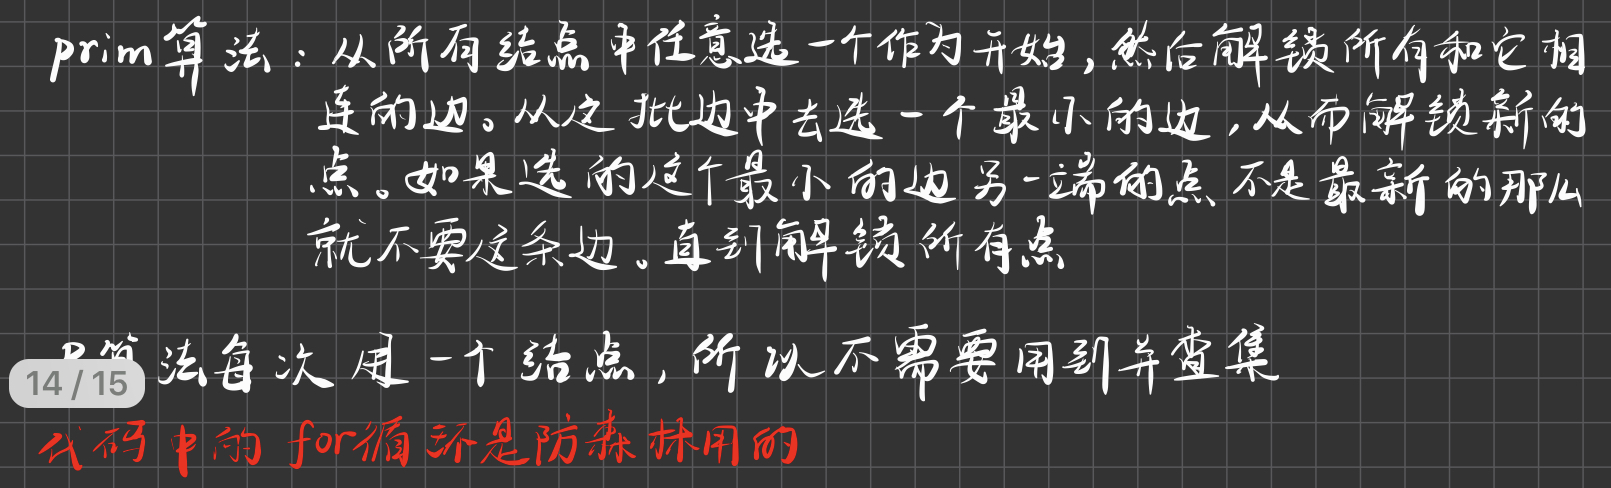 prim算法：从所有结点中任意选一个作为开始，然后解锁所有和它相
连的边。从这批边中去选一个最小的边，从而解锁新的
点。如果选的这个最小的边另一端的点不是最新的那么
就不要这条边。直到解锁所有点
P算法每次用一个结点，所以不需要用到并查集
14 / 15
代码中的for循环是防森林用的